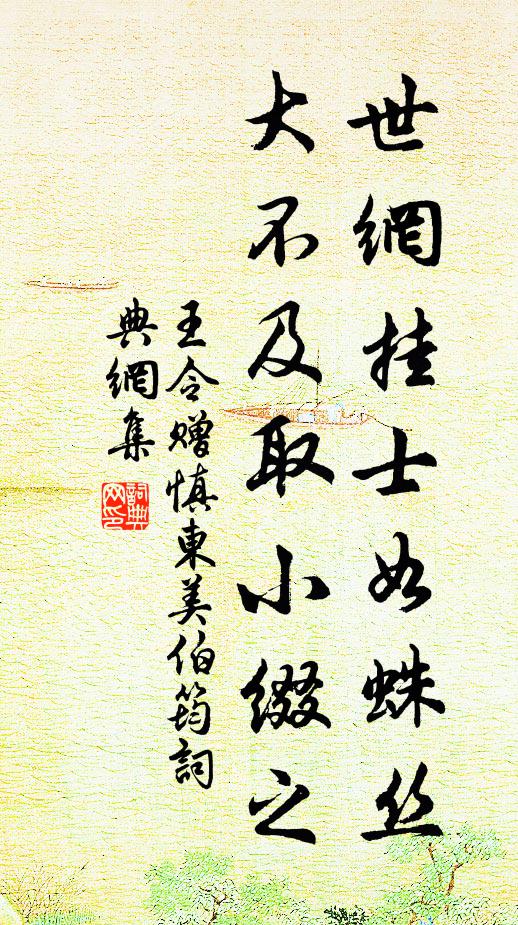 世網挂士如蛛丝
大不及取小綴之
王令赠慎東美伯筠詞
典網集
詞典网印